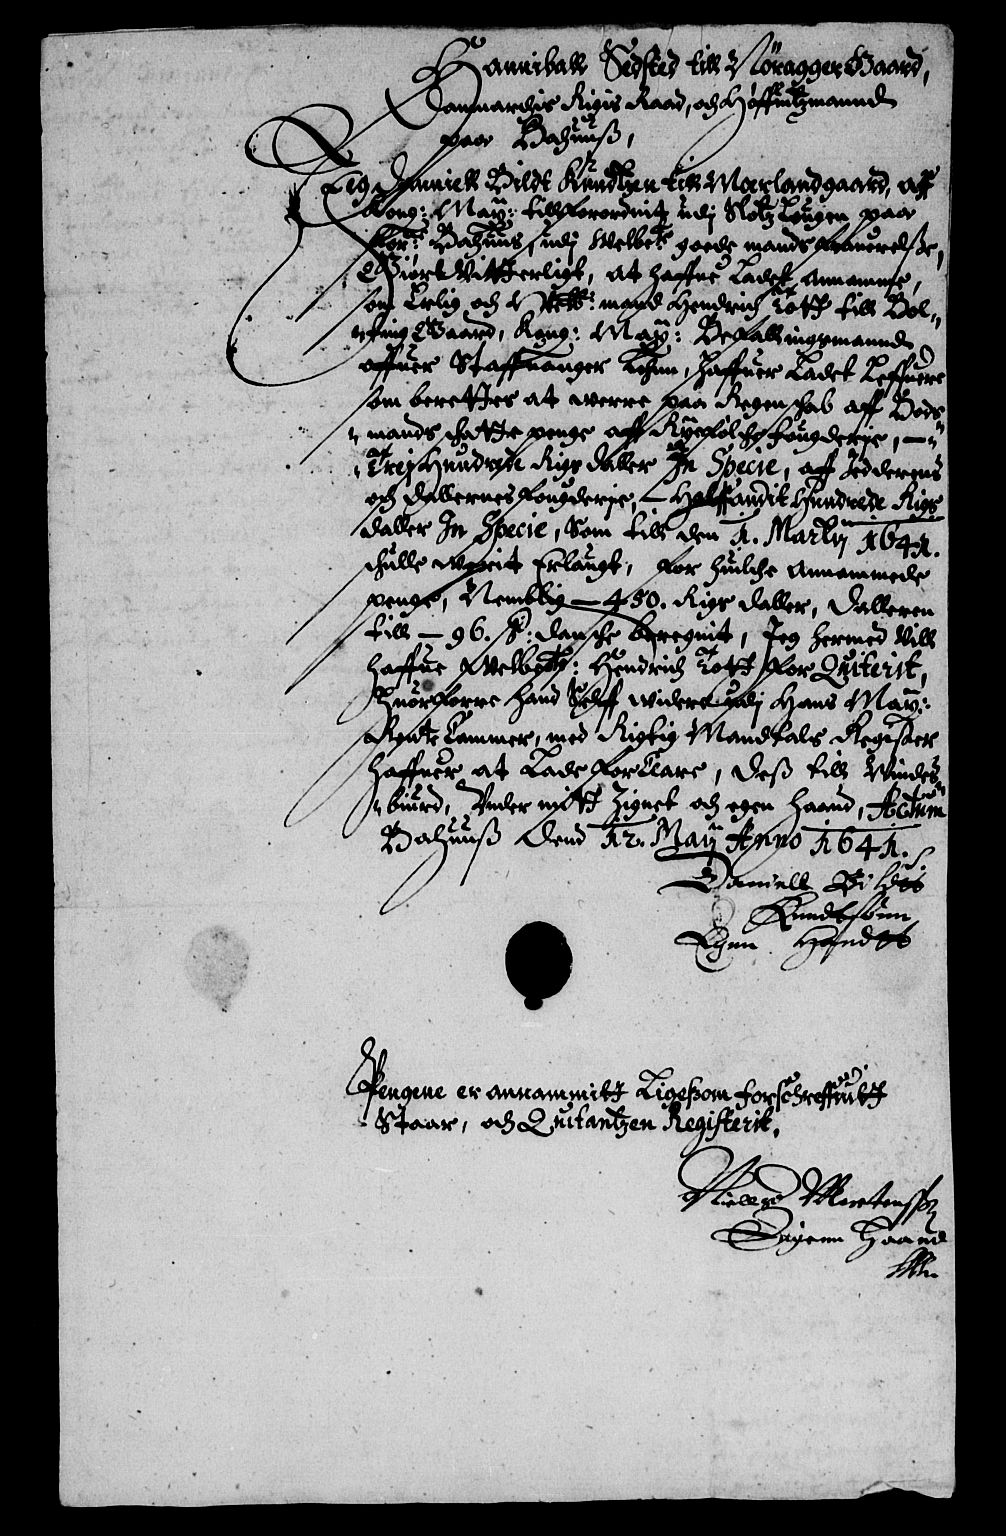 Hanniball Sedsted till Nöragger Gaard,
Danmarchis Rigis Raad, och Høffuitzmannd
paa Bahuuß,
Jeg Danniell Bildt Knudtzen till Morlandgaard, aff
Kong: May: tillforordnit udj Slotz Lougen paa
for: Bahuus, udj Welbet: goede mands frauerelße,
Giør Vitterligt, at haffue Ladet Annamme,
som Erlig och Velb: mand Hendrich Tott till Bol-
ting Gaard, Kong: May: Befallingsmannd
offuer Staffuanger Lehn, haffuer Ladet Leffuere
som berettes at werre paa Regenschab aff Bods
mands schatte penge aff Ryefølche fougderje, —
Trej Hundrede Rigs daller In Specie, aff Jedderens
och Dallernes fougderje, — Halffandit Hundrede Rigs
daller In Specie, Som till den 1. Martij 1641.
schulle werit Erlaugt, for huilche Annammede
penge, Nemblig — 450. Rigs daller, Dalleren
till — 96. ß: dansche beregnit, Jeg hermed Vill
haffue Welbete: Hendrich Tott for Quiterit,
Huorforre hand Selff widere udj Hans May:
Rente Cammer, med Rigtig Mandtals Register
haffuer at Lade forClare, Deß till Windes-
biurd, Under mitt Zignet och egen haand, Actum
Bahuuß Dend 12. Maij Anno 1641.
Daniell Bildt
Knudtsønn
Egen Handt
Pengene er annammitt Ligesom forschreffuitt
Staar, och Quitantzen Registerit.
Niels Mortenssøn
Eigenn Haand